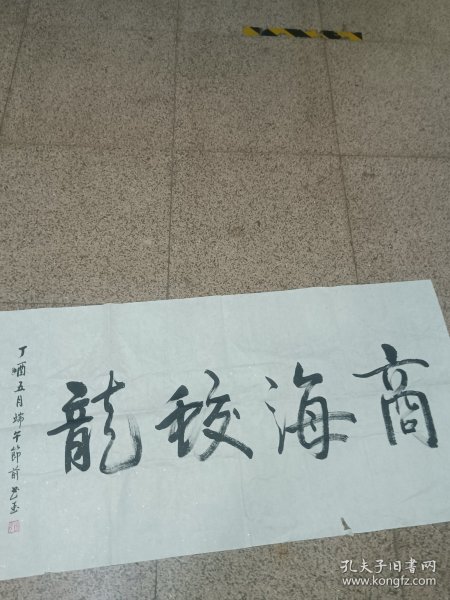 商海蛟龍
丁酉五月端午節前
孔夫子旧書网
www.kongfz.com